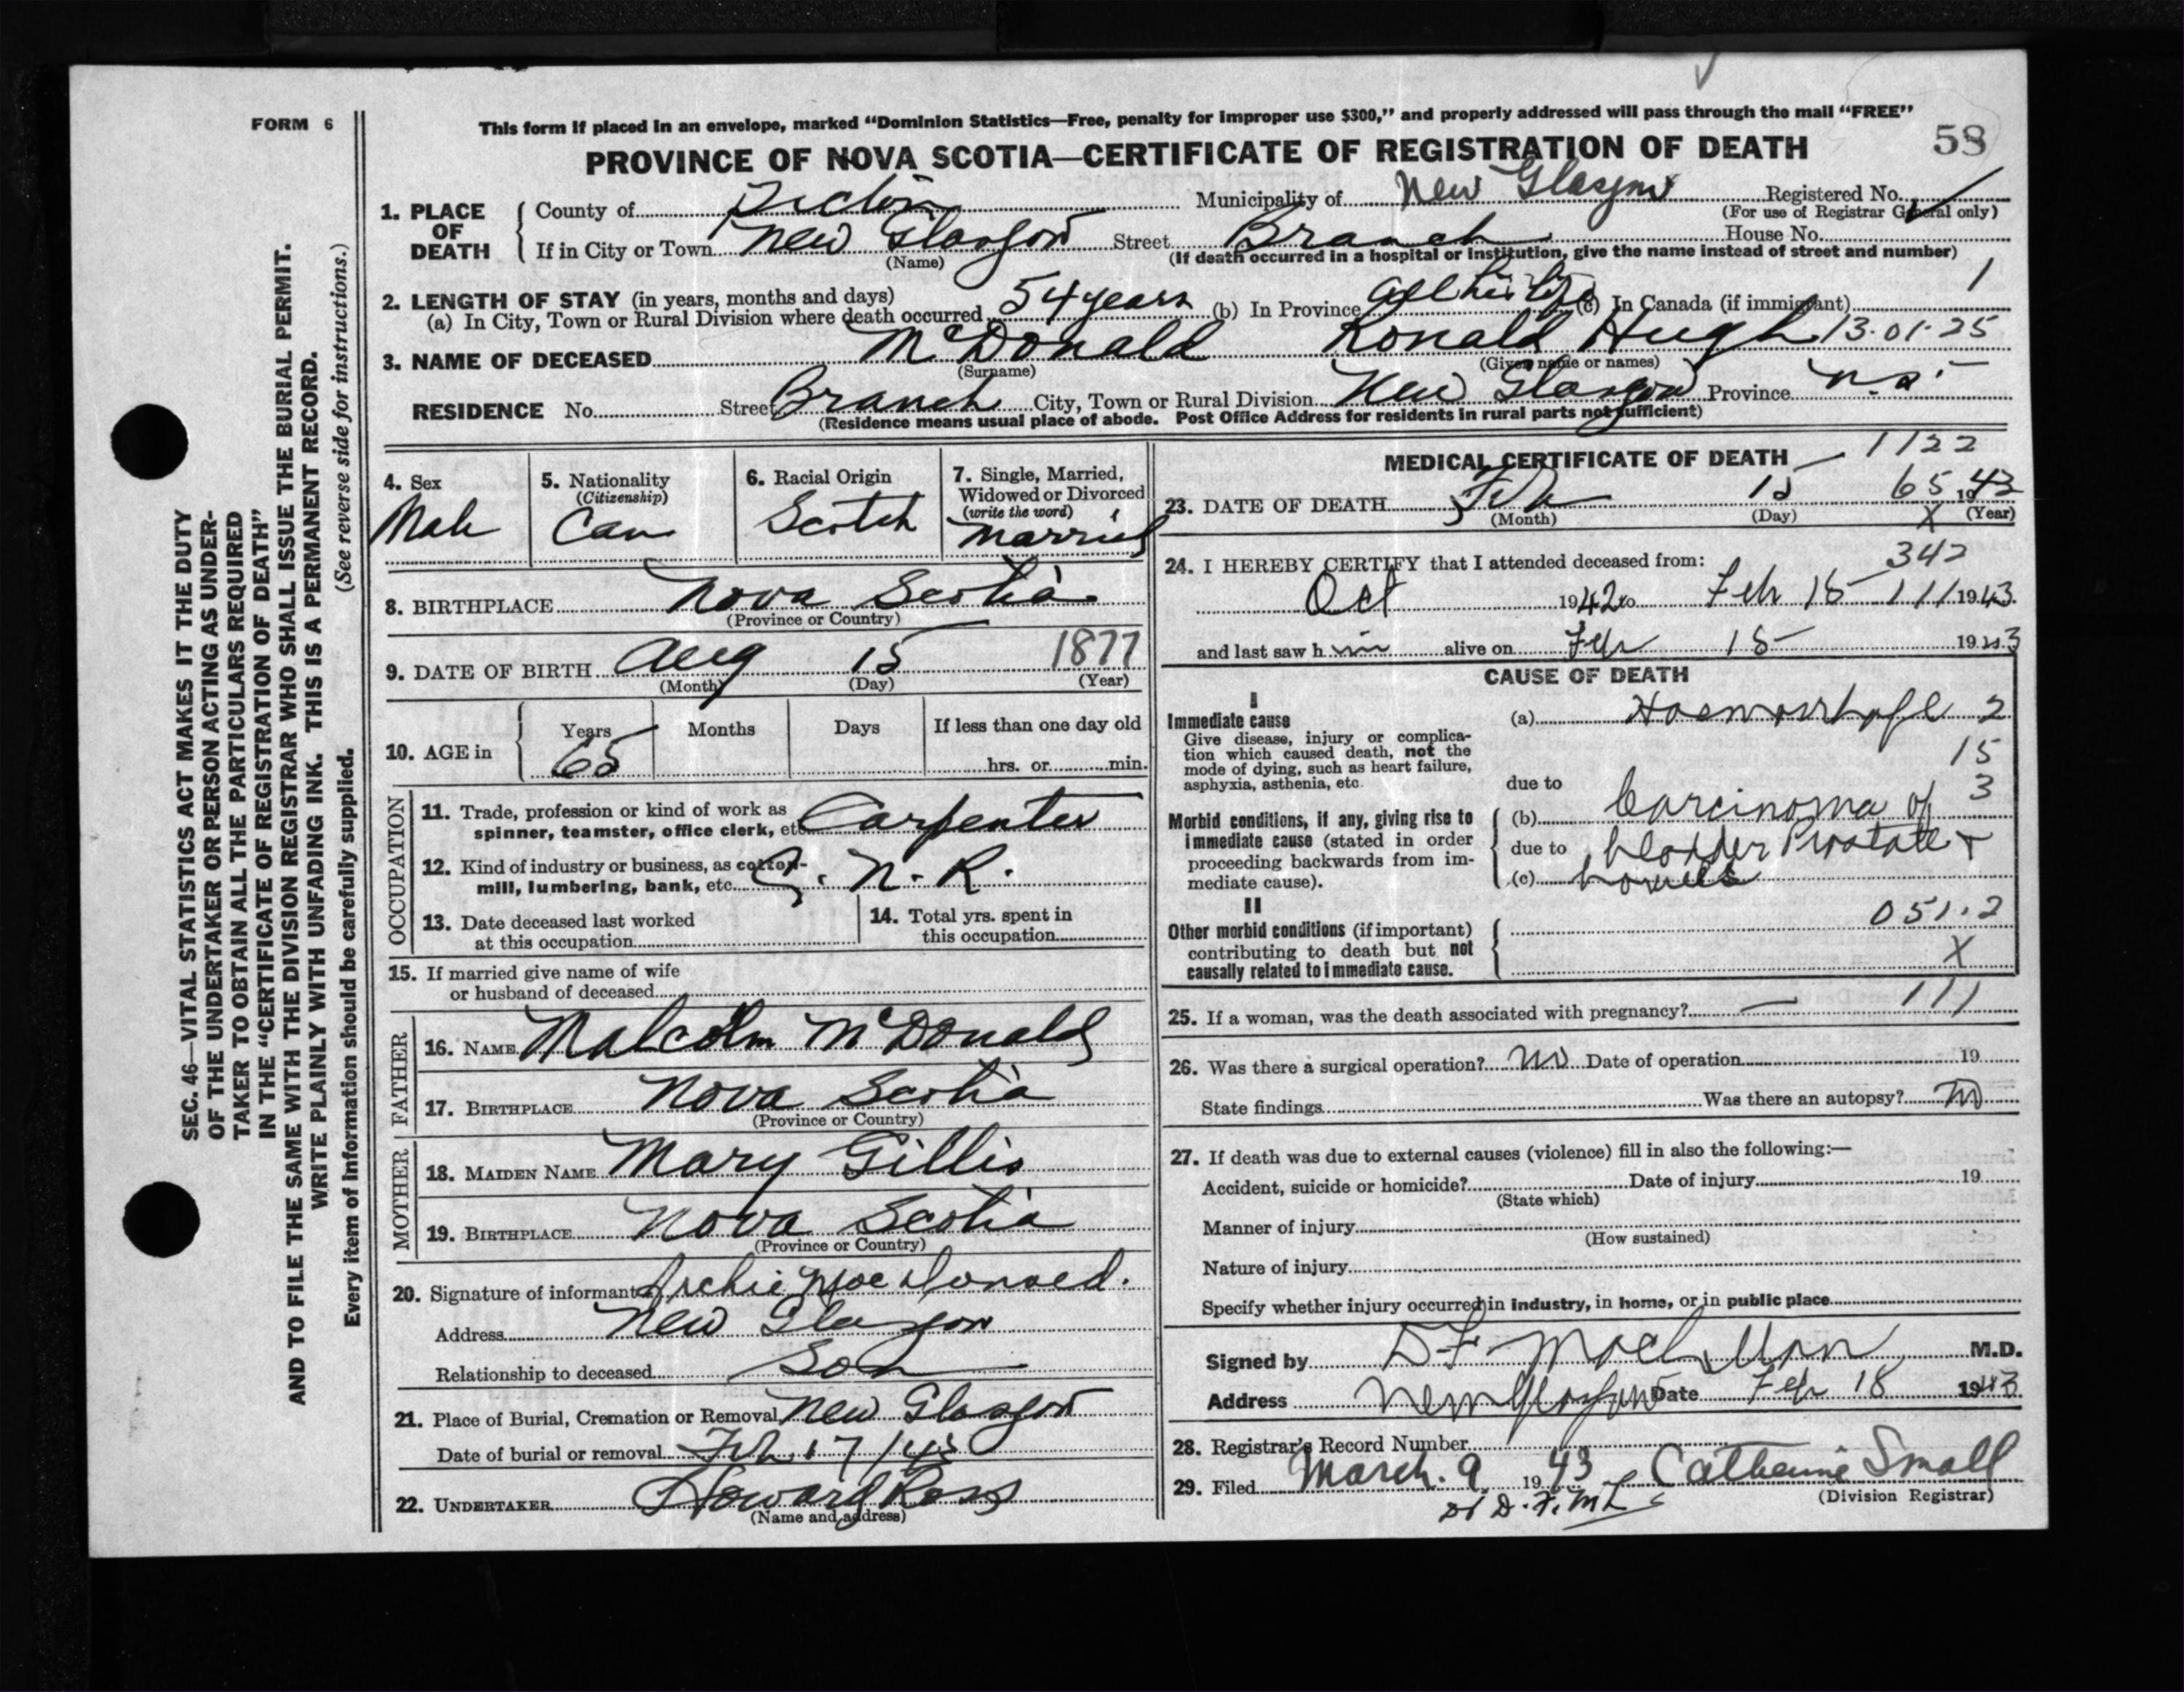 FORM 6
This form if placed in an envelope, marked "Dominion Statistics—Free, penalty for improper use $300," and properly addressed will pass through the mail "FREE"
58
PROVINCE OF NOVA SCOTIA—CERTIFICATE OF REGISTRATION OF DEATH
1. PLACE OF DEATH { County of Pictou Municipality of New Glasgow Registered No.
(For use of Registrar General only)
If in City or Town New Glasgow Street Branch House No.
(Name) (If death occurred in a hospital or institution, give the name instead of street and number)
2. LENGTH OF STAY (in years, months and days) 1
(a) In City, Town or Rural Division where death occurred 54 years (b) In Province All his life (c) In Canada (if immigrant)
3. NAME OF DECEASED McDonald Ronald Hugh 13·01·25
(Surname) (Given name or names)
RESIDENCE No. Street Branch City, Town or Rural Division New Glasgow Province N.S.
(Residence means usual place of abode. Post Office Address for residents in rural parts not sufficient)
4. Sex Male
5. Nationality (Citizenship) Can
6. Racial Origin Scotch
7. Single, Married, Widowed or Divorced (write the word) Married
8. BIRTHPLACE Nova Scotia
(Province or Country)
9. DATE OF BIRTH Aug 15 1877
(Month) (Day) (Year)
10. AGE in { Years 65 Months Days If less than one day old
hrs. or min.
OCCUPATION
11. Trade, profession or kind of work as
spinner, teamster, office clerk, etc. Carpenter
12. Kind of industry or business, as cotton-
mill, lumbering, bank, etc. C. N. R.
13. Date deceased last worked
at this occupation
14. Total yrs. spent in
this occupation
15. If married give name of wife
or husband of deceased
FATHER
16. NAME Malcolm McDonald
17. BIRTHPLACE Nova Scotia
(Province or Country)
MOTHER
18. MAIDEN NAME Mary Gillis
19. BIRTHPLACE Nova Scotia
(Province or Country)
20. Signature of informant Archie MacDonald.
Address New Glasgow
Relationship to deceased Son
21. Place of Burial, Cremation or Removal New Glasgow
Date of burial or removal Feb. 17/43
22. UNDERTAKER Howard Ross
(Name and address)
MEDICAL CERTIFICATE OF DEATH 1122
23. DATE OF DEATH Feb 15 65 1943
(Month) (Day) X (Year)
24. I HEREBY CERTIFY that I attended deceased from: 342
Oct 1942 to Feb 15 111 1943
and last saw him alive on Feb 15 1943
CAUSE OF DEATH
I
Immediate cause (a) Haemorrhage 2
Give disease, injury or complica-
tion which caused death, not the 15
mode of dying, such as heart failure,
asphyxia, asthenia, etc. due to 3
Morbid conditions, if any, giving rise to (b) Carcinoma of
immediate cause (stated in order
proceeding backwards from im- due to bladder Prostate +
mediate cause). (c) bowels
II
Other morbid conditions (if important) 051.2
contributing to death but not X
causally related to immediate cause.
25. If a woman, was the death associated with pregnancy? — 111
26. Was there a surgical operation? No Date of operation 19
State findings Was there an autopsy? No
27. If death was due to external causes (violence) fill in also the following:—
Accident, suicide or homicide? Date of injury 19
(State which)
Manner of injury
(How sustained)
Nature of injury
Specify whether injury occurred in industry, in home, or in public place
Signed by D F MacLellan M.D.
Address New Glasgow Date Feb 18 1943
28. Registrar's Record Number
29. Filed March. 9 1943 Catherine Small
(Division Registrar)
D. F. McL
SEC. 46—VITAL STATISTICS ACT MAKES IT THE DUTY
OF THE UNDERTAKER OR PERSON ACTING AS UNDER-
TAKER TO OBTAIN ALL THE PARTICULARS REQUIRED
IN THE "CERTIFICATE OF REGISTRATION OF DEATH"
AND TO FILE THE SAME WITH THE DIVISION REGISTRAR WHO SHALL ISSUE THE BURIAL PERMIT.
WRITE PLAINLY WITH UNFADING INK. THIS IS A PERMANENT RECORD.
Every item of information should be carefully supplied. (See reverse side for instructions.)